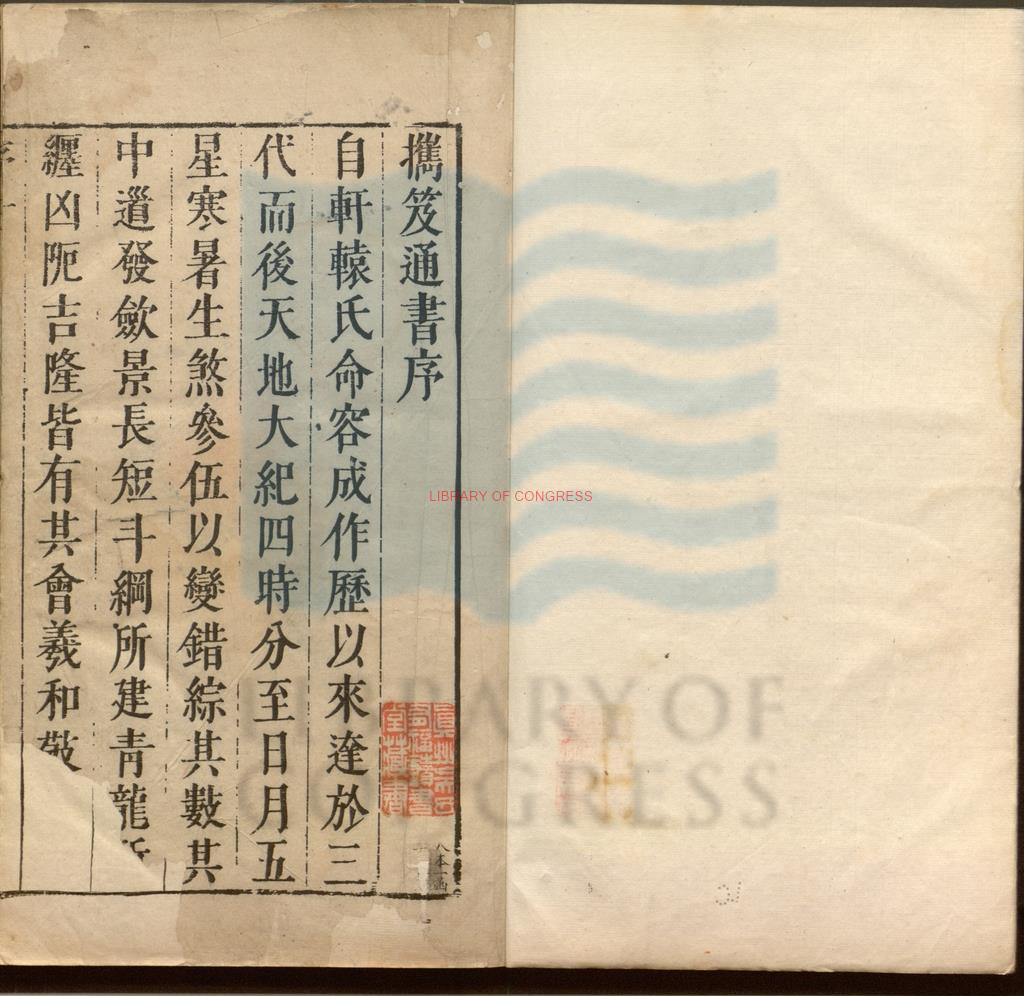 攜笈通書序
自軒轅氏命容成作歷以來逹於三
代而後天地大紀四時分至日月五
星寒暑生煞參伍以變錯綜其數其
中遒發斂景長短斗綱所建青龍所
纏凶阨吉隆皆有其會羲和敬
八本一函
LIBRARY OF CONGRESS
LIBRARY OF CONGRESS